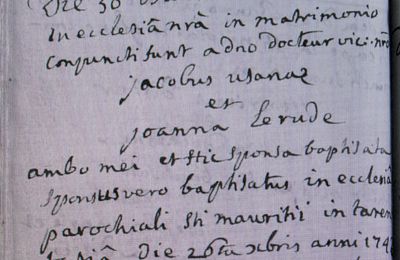 Die 30
in ecclesiâ nrâ in matrimonio
conjuncti sunt a dno docteur vici: nrô
jacobus usanaz
et
joanna Lerude
ambo mei et hic sponsa baptisata
sponsus vero baptisatus in ecclesiâ
parochiali sti mauritii in taren
die 26tâ xbris anni 174